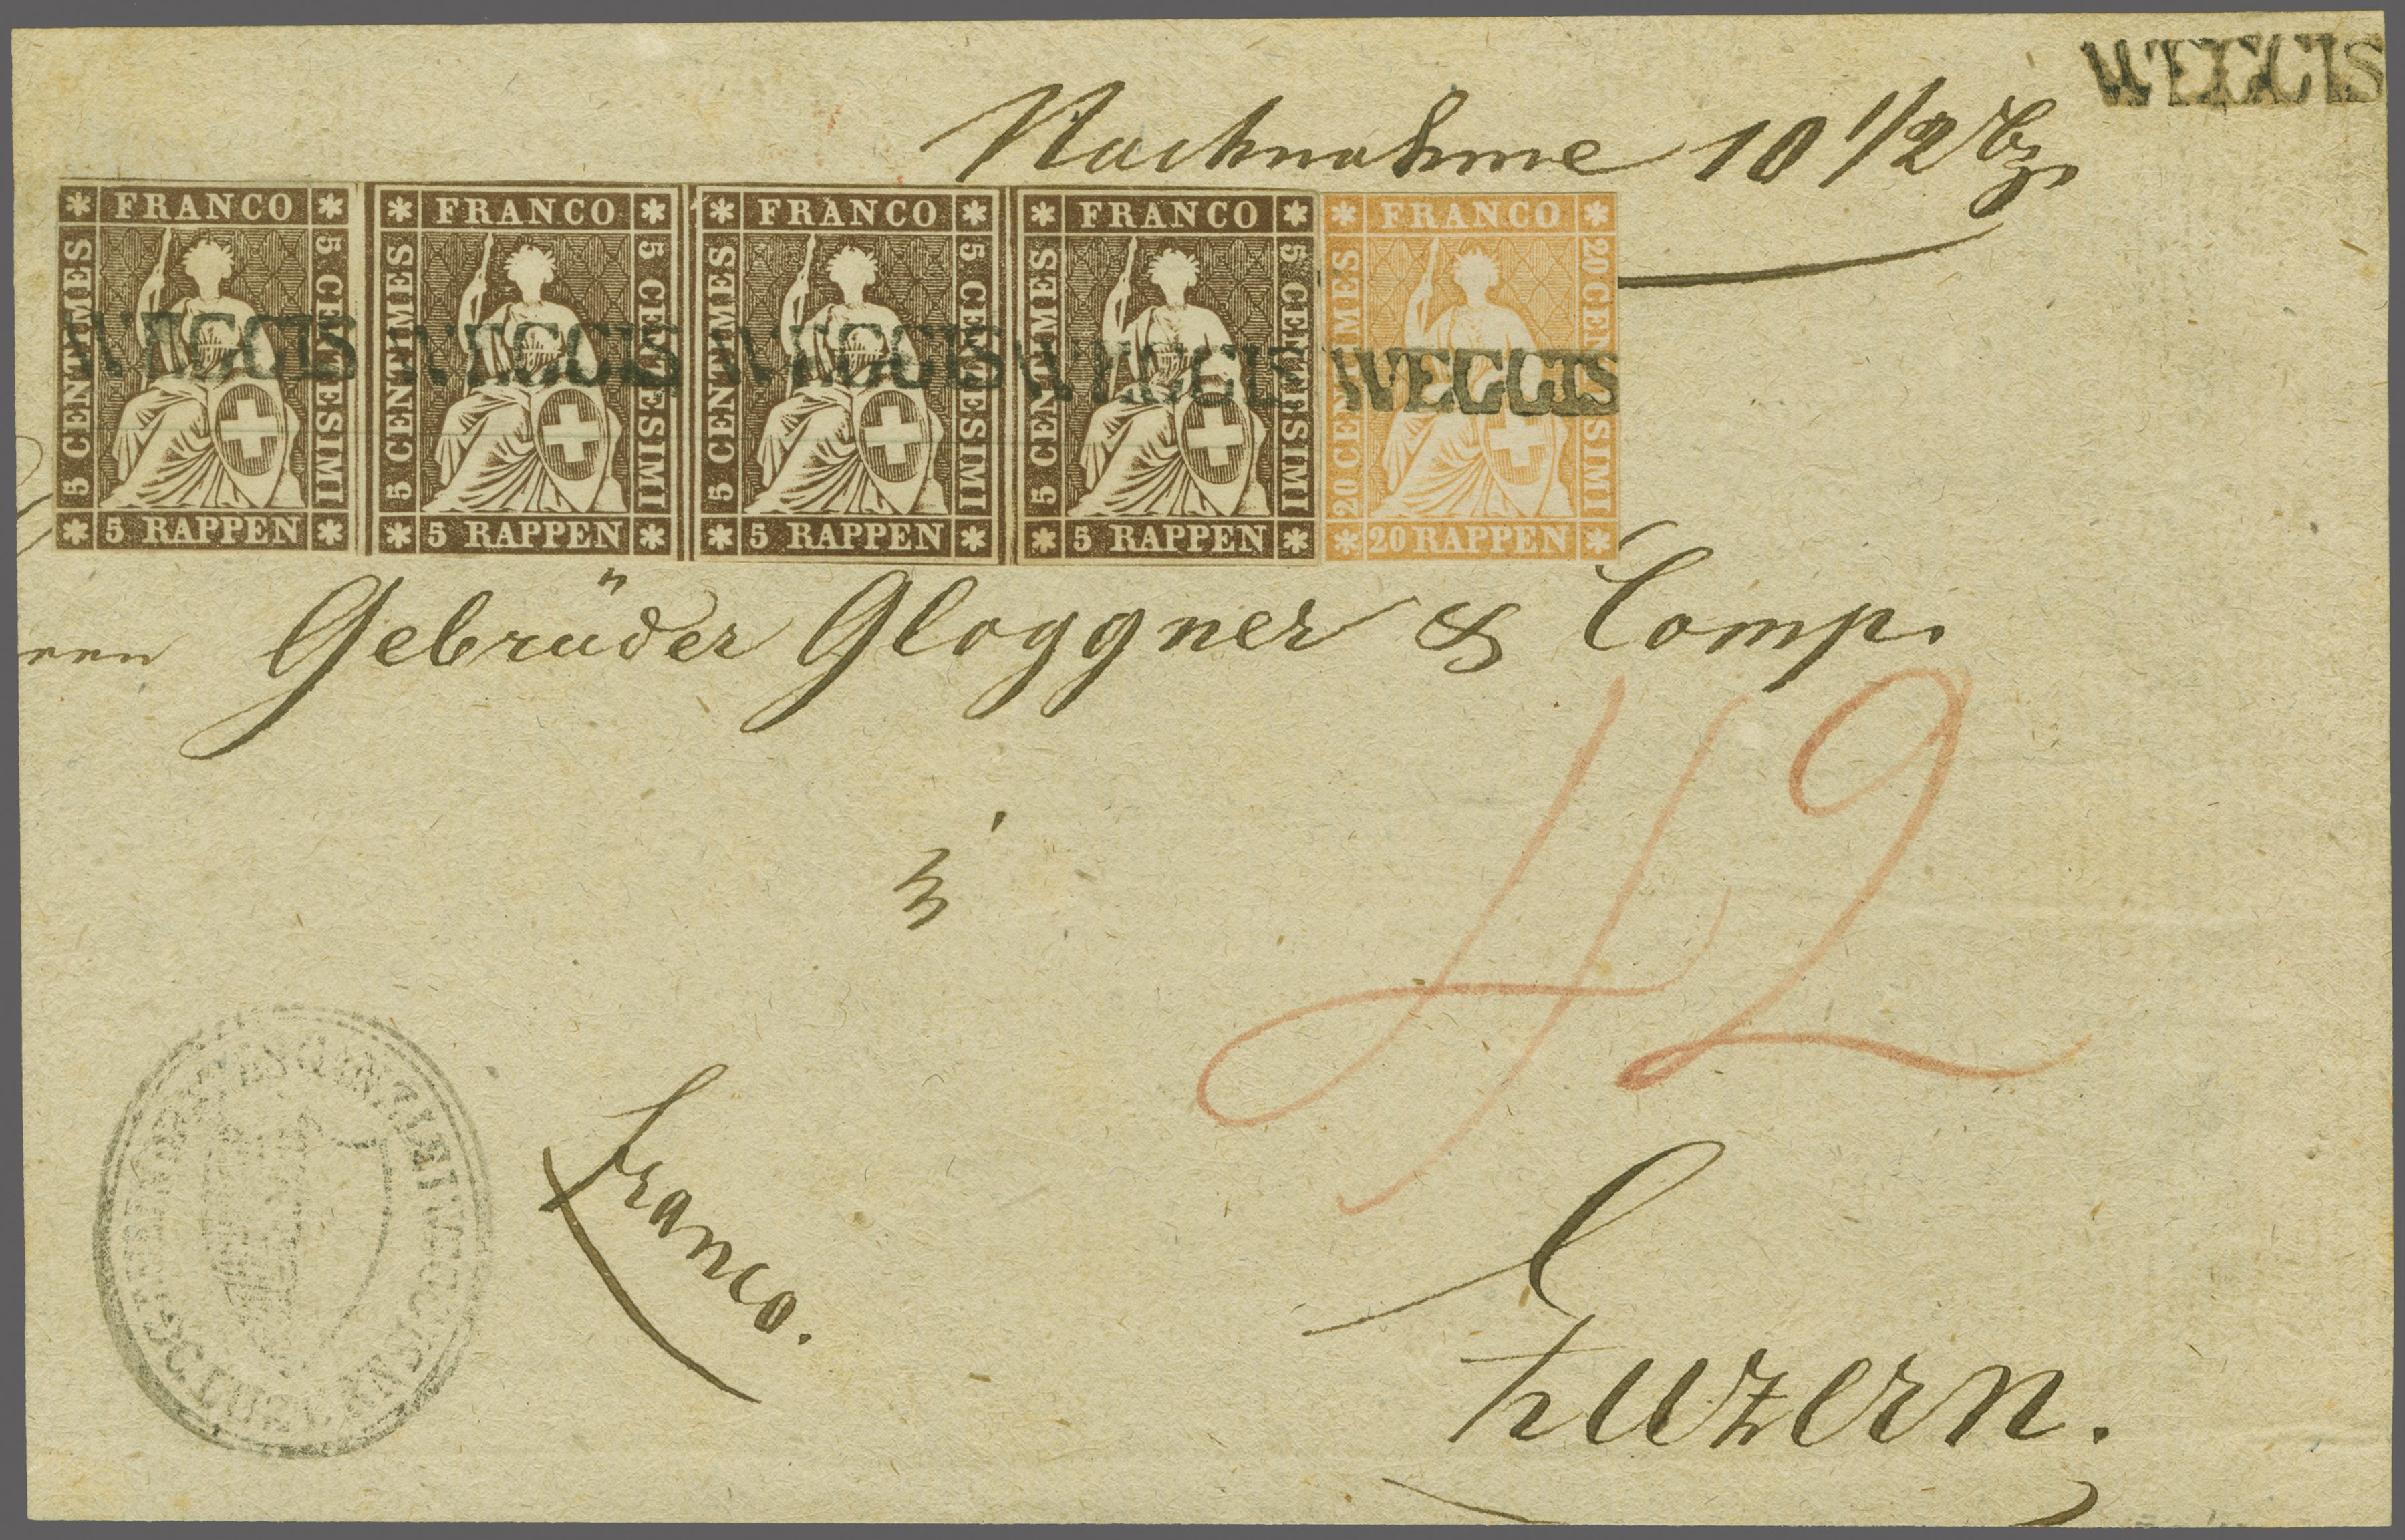 WEGGIS
Nachnahme 10 1/2 bz.
FRANCO FRANCO FRANCO FRANCO FRANCO
5 CENTIMES 5 CENTESIMI 5 CENTIMES 5 CENTESIMI 5 CENTIMES 5 CENTESIMI 5 CENTIMES 5 CENTESIMI 20 CENTIMES 20 CENTESIMI
WEGGIS WEGGIS WEGGIS WEGGIS WEGGIS
5 RAPPEN 5 RAPPEN 5 RAPPEN 5 RAPPEN 20 RAPPEN
Gebrüder Gloggner & Comp.
42
Franco.
Luzern.